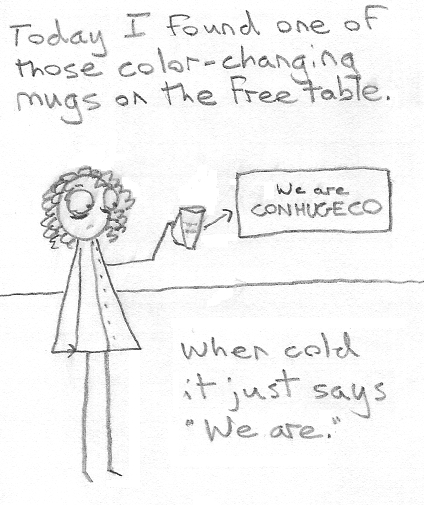 Today I found one of
those color-changing
mugs on the free table.
We are
CONHUGECO
When cold
it just says
"We are."